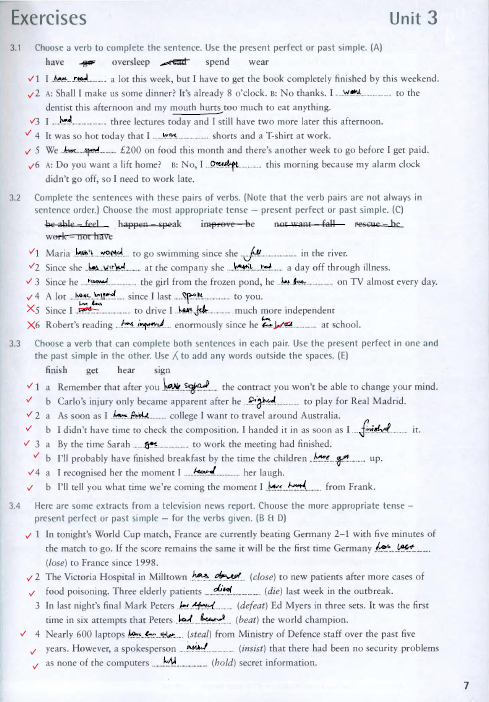 Exercises
Unit 3
3.1 Choose a verb to complete the sentence. Use the present perfect or past simple. (A)
have go oversleep read spend wear
✓1 I have read a lot this week, but I have to get the book completely finished by this weekend.
✓2 A: Shall I make us some dinner? It's already 8 o'clock. B: No thanks. I went to the
dentist this afternoon and my mouth hurts too much to eat anything.
✓3 I had three lectures today and I still have two more later this afternoon.
✓4 It was so hot today that I wore shorts and a T-shirt at work.
✓5 We have spent £200 on food this month and there's another week to go before I get paid.
✓6 A: Do you want a lift home? B: No, I overslept this morning because my alarm clock
didn't go off, so I need to work late.
3.2 Complete the sentences with these pairs of verbs. (Note that the verb pairs are not always in
sentence order.) Choose the most appropriate tense – present perfect or past simple. (C)
be able – feel happen – speak improve – be not want – fall rescue – be
work – not have
✓1 Maria hasn't wanted to go swimming since she fell in the river.
✓2 Since she has worked at the company she hasn't had a day off through illness.
✓3 Since he rescued the girl from the frozen pond, he has been on TV almost every day.
✓4 A lot have happened since I last spoke to you.
✗5 Since I to drive I have felt much more independent
✗6 Robert's reading has improved enormously since he at school.
3.3 Choose a verb that can complete both sentences in each pair. Use the present perfect in one and
the past simple in the other. Use ⁁ to add any words outside the spaces. (E)
finish get hear sign
✓1 a Remember that after you have signed the contract you won't be able to change your mind.
✓ b Carlo's injury only became apparent after he signed to play for Real Madrid.
✓2 a As soon as I have finished college I want to travel around Australia.
✓ b I didn't have time to check the composition. I handed it in as soon as I finished it.
✓3 a By the time Sarah got to work the meeting had finished.
✓ b I'll probably have finished breakfast by the time the children have got up.
✓4 a I recognised her the moment I heard her laugh.
✓ b I'll tell you what time we're coming the moment I have heard from Frank.
3.4 Here are some extracts from a television news report. Choose the more appropriate tense –
present perfect or past simple – for the verbs given. (B & D)
✓1 In tonight's World Cup match, France are currently beating Germany 2–1 with five minutes of
the match to go. If the score remains the same it will be the first time Germany has lost
(lose) to France since 1998.
✓2 The Victoria Hospital in Milltown has closed (close) to new patients after more cases of
✓ food poisoning. Three elderly patients died (die) last week in the outbreak.
3 In last night's final Mark Peters has defeated (defeat) Ed Myers in three sets. It was the first
time in six attempts that Peters had (beat) the world champion.
✓4 Nearly 600 laptops have been stolen (steal) from Ministry of Defence staff over the past five
✓ years. However, a spokesperson insisted (insist) that there had been no security problems
✓ as none of the computers held (hold) secret information.
7